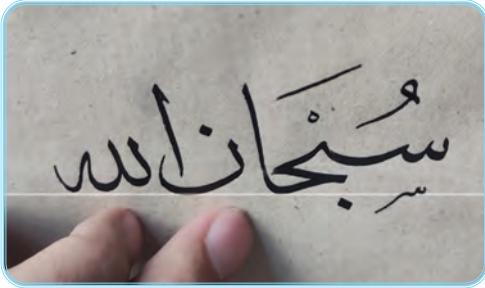 سُبْحَان الله